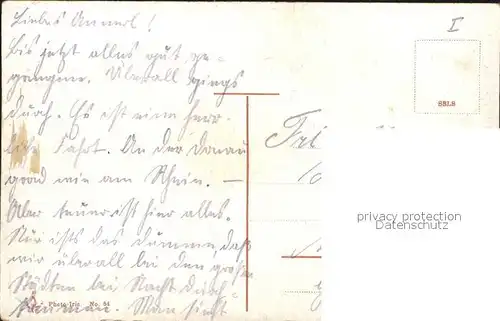 Liebes Annerl!
Bis jetzt alles gut ge-
gangen. Überall gings
durch. Es ist eine herr-
liche Fahrt. An der Donau
grad wie am Rhein. —
Aber teuer ist hier alles.
Nur ists das dumme, daß
wir überall bei den großen
Städten bei Nacht durch-
Man sieht
Photo-Iris No. 84
I
Fri
privacy protection
Datenschutz